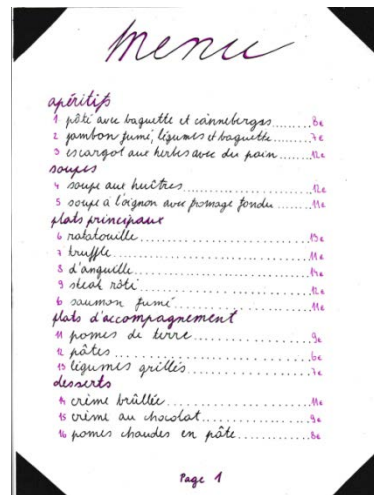 menu
apéritifs
1 pâté avec baguette et canneberges.......8€
2 jambon fumé, légumes et baguette.......7€
3 escargot aux herbes avec du pain.......12€
soupes
4 soupe aux huîtres.......12€
5 soupe à l'oignon avec fromage fondu.......11€
plats principaux
6 ratatouille.......13€
7 truffle.......11€
8 d'anguille.......14€
9 steak rôti.......12€
6 saumon fumé.......11€
plats d'accompagnement
11 pomes de terre.......9€
12 pâtes.......6€
13 légumes grillés.......7€
desserts
14 crème brûllée.......11€
15 crème au chocolat.......9€
16 pomes chaudes en pâte.......8€
Page 1